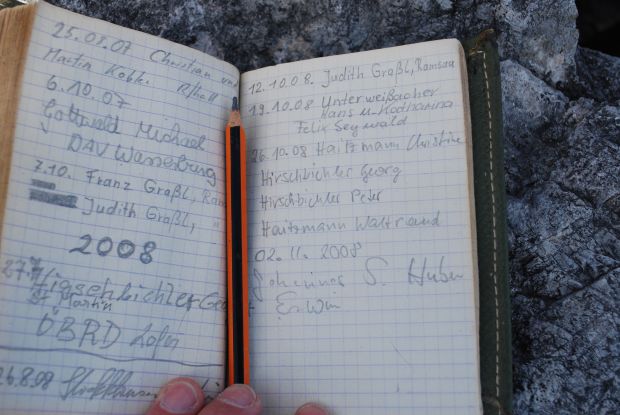 25.08.07 Christian und
Martin Kobke R/hall
6.10.07
Gottwald Michael
DAV Wasserburg
7.10. Franz Graßl, Rams
Judith Graßl, "
2008
27.7. Hirschbichler Geo
St. Martin
ÖBRD Lofer
26.8.08
12.10.08. Judith Graßl, Ramsau
19.10.08 Unterweißacher
Hans u. Katharina
Felix Seywald
26.10.08 Haitzmann Christine
Hirschbichler Georg
Hirschbichler Peter
Haitzmann Waltraud
02.11.2008
Johannes S. Huber
Erwin